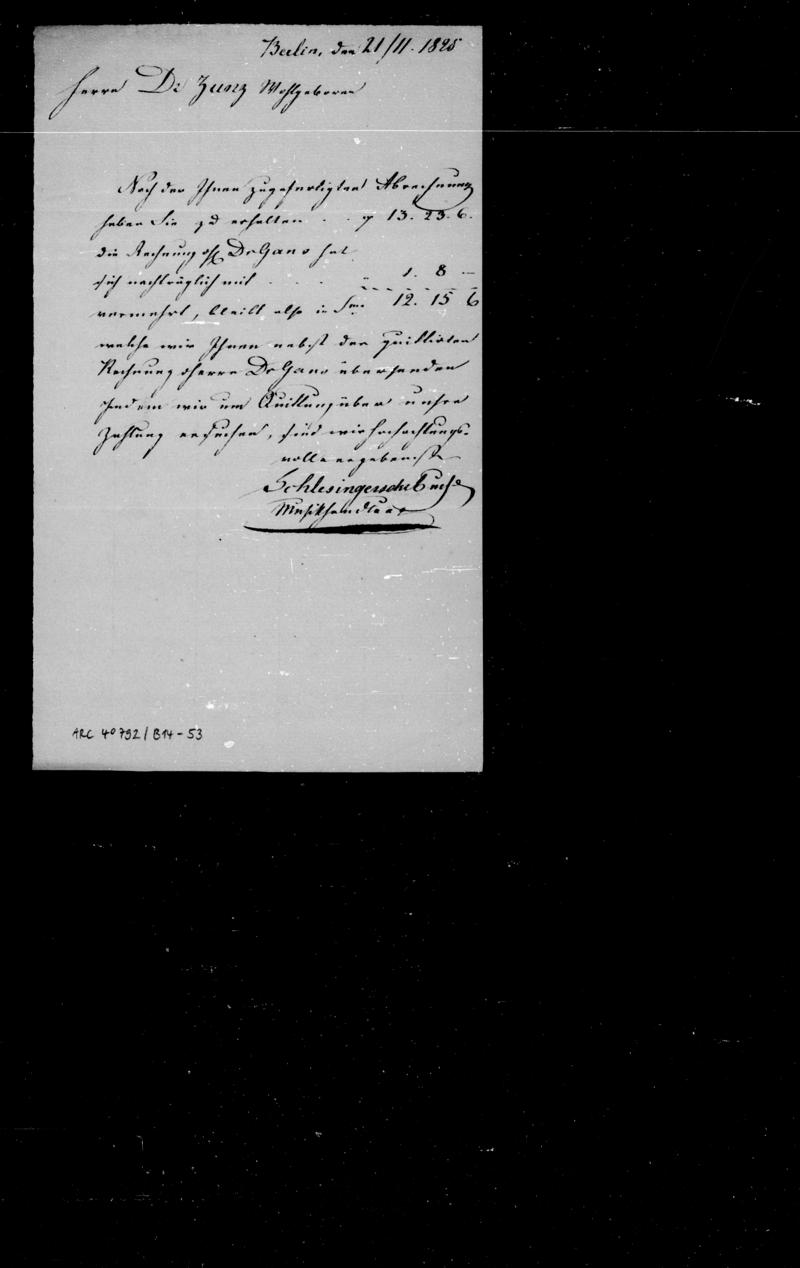 Berlin, den 21/11. 1825
Herrn Dr Zunz Wohlgeboren
Nach der Ihnen zugefertigten Abrechnung
haben Sie zu erhalten . . 13. 23. 6.
die Rechnung Dr Gans hat
sich nachträglich mit . . . . 1. 8 —
vermehrt, bleibt also in 12. 15 6
welche wir Ihnen nebst der quittirten
Rechnung Herrn Dr Gans übersenden
Indem wir um Quittung über unsre
Zahlung ersuchen, sind wir hochachtungs-
voll ergebenste
Schlesingersche Buch &
Musikhandlung
ARC 4° 792 / B14 - 53